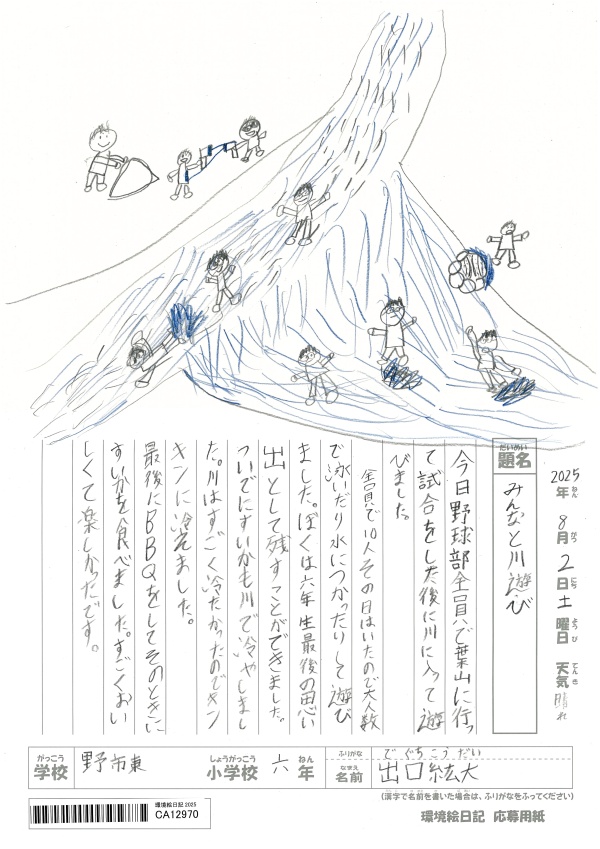 2025年 8月 2日 土曜日 天気 晴れ
ねん がつ にち ようび てんき
だいめい
題名
みんなと川遊び
今日野球部全員で葉山に行っ
て試合をした後に川に入って遊
びました。
全員で10人その日はいたので大人数
で泳いだり水につかったりして遊び
ました。ぼくは六年生最後の思い
出として残すことができました。
ついでにすいかも川で冷やしまし
た。川はすごく冷たかったのでキン
キンに冷えました。
最後にBBQをしてそのときに
すいかを食べました。すごくおい
しくて楽しかったです。
がっこう
学校
野市東
しょうがっこう
小学校
六
ねん
年
ふりがな
でぐちこうだい
なまえ
名前
出口紘大
(漢字で名前を書いた場合は、ふりがなをふってください)
環境絵日記 応募用紙
環境絵日記 2025
CA12970